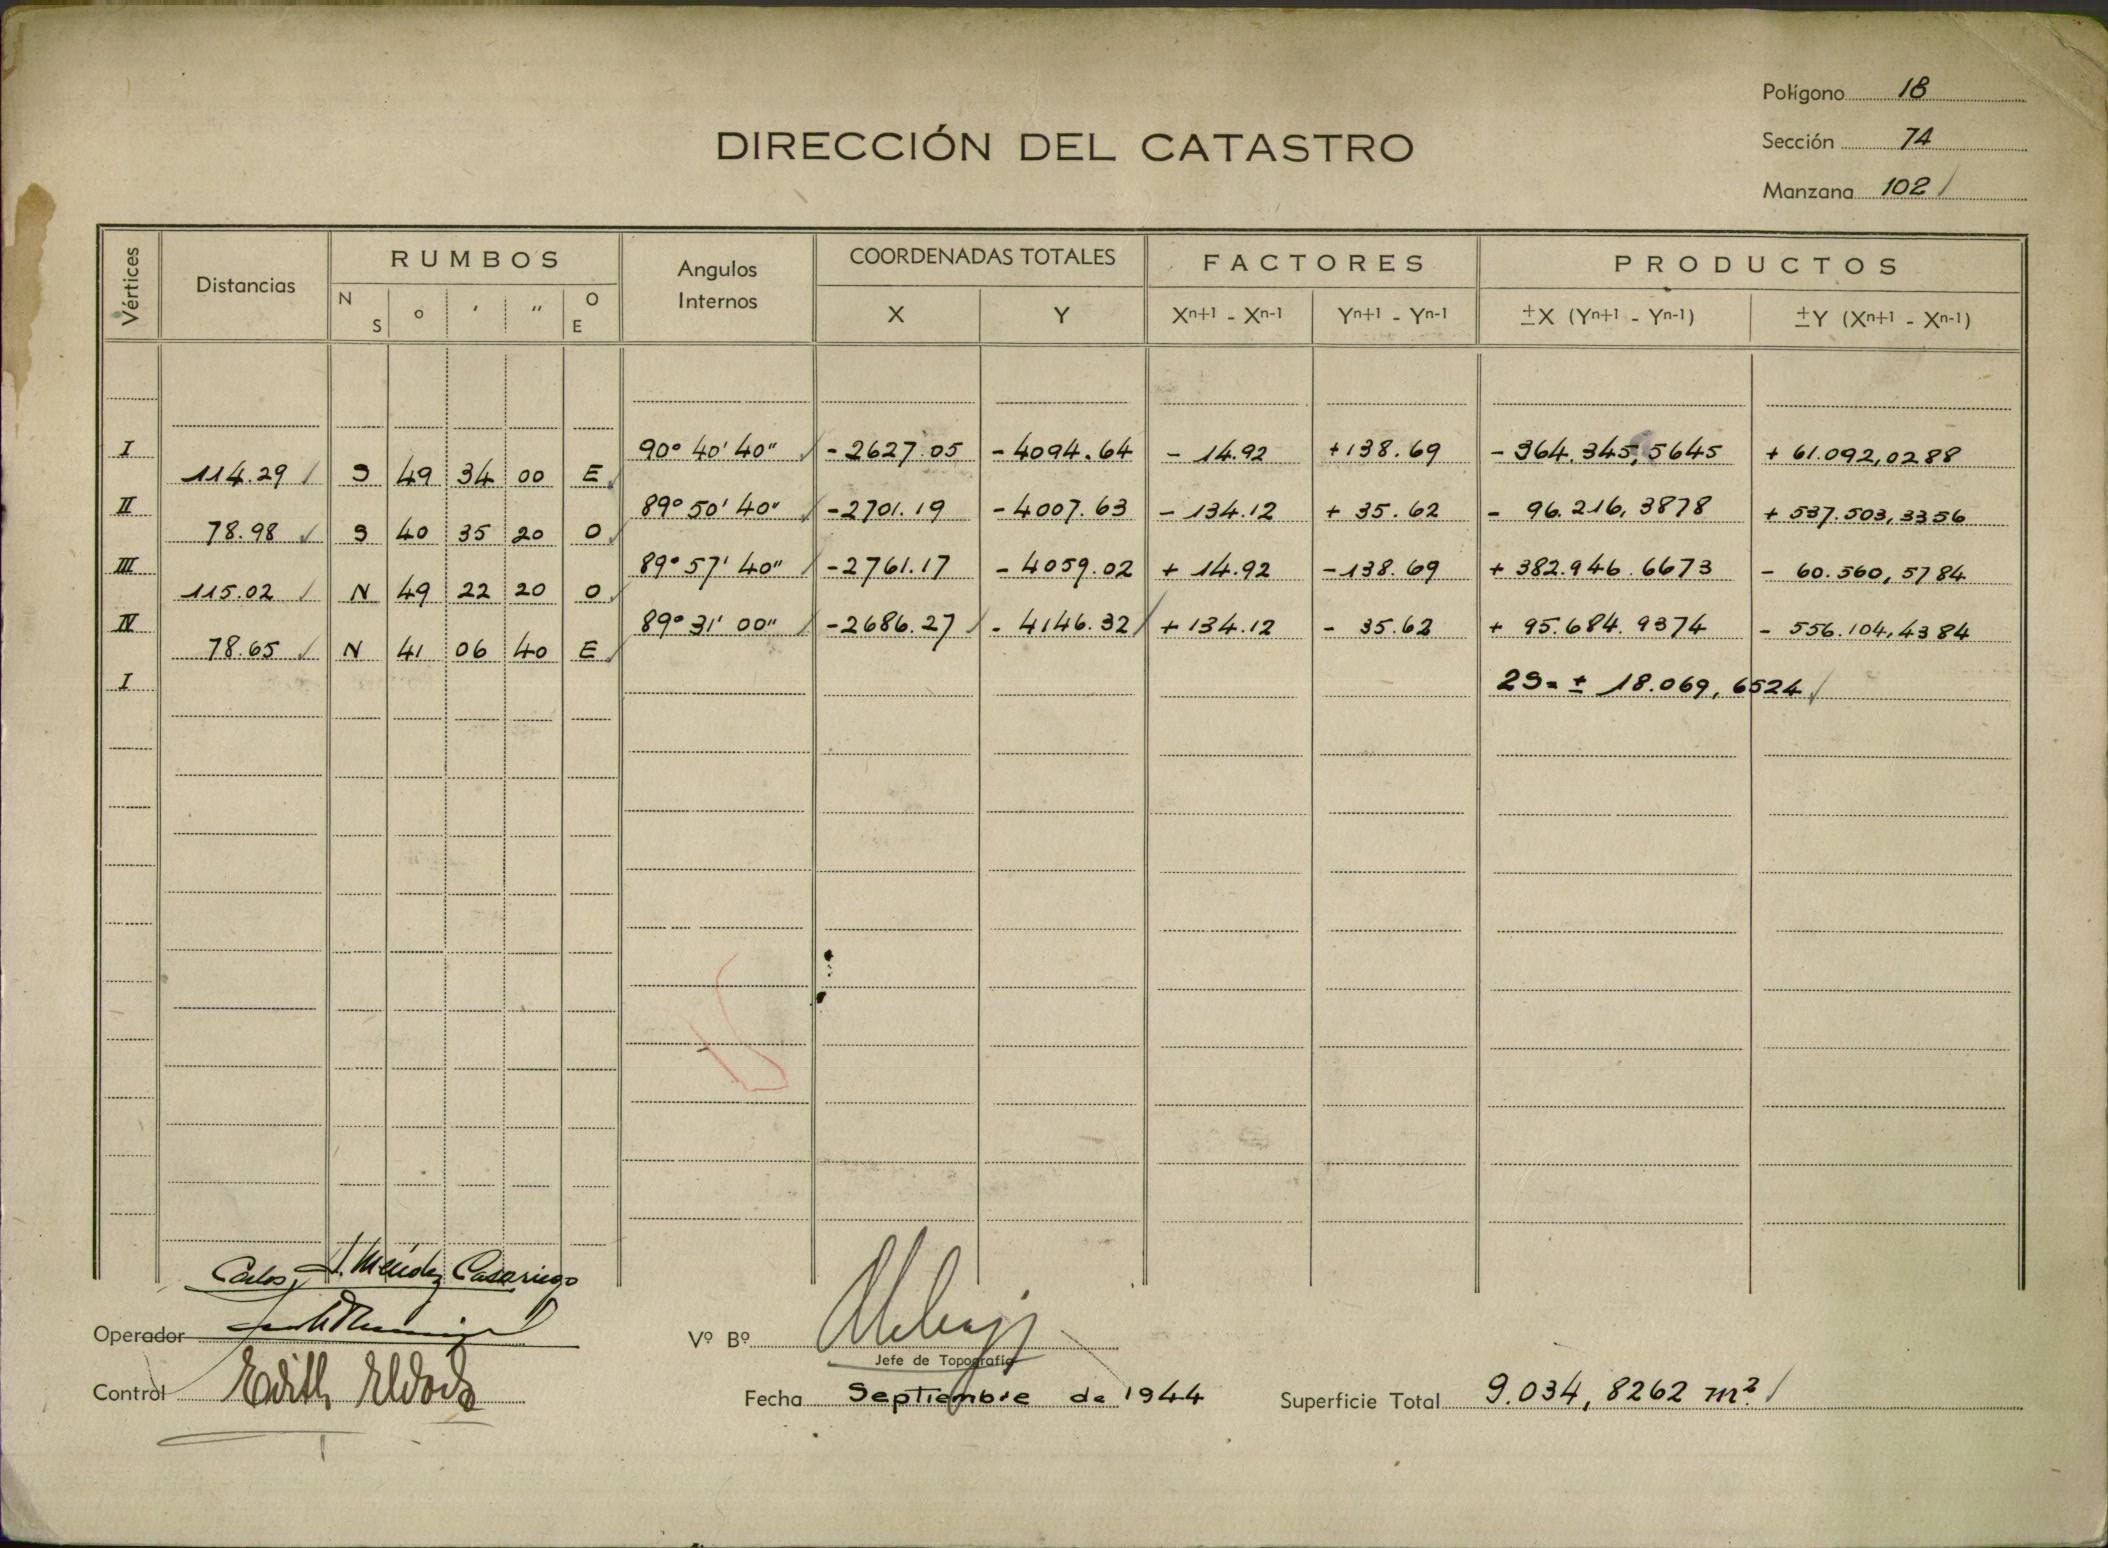 Polígono 18
DIRECCIÓN DEL CATASTRO
Sección 74
Manzana 102
Vértices
Distancias
RUMBOS
N S ° ' " O E
Angulos Internos
COORDENADAS TOTALES
X Y
FACTORES
Xn+1 - Xn-1 Yn+1 - Yn-1
PRODUCTOS
±X (Yn+1 - Yn-1) ±Y (Xn+1 - Xn-1)
I 90° 40' 40" -2627.05 -4094.64 - 14.92 +138.69 - 364.345,5645 + 61.092,0288
114.29 S 49 34 00 E
II 89° 50' 40" -2701.19 -4007.63 - 134.12 + 35.62 - 96.216,3878 + 537.503,3356
78.98 S 40 35 20 O
III 89° 57' 40" -2761.17 - 4059.02 + 14.92 -138.69 + 382.946.6673 - 60.560,5784
115.02 N 49 22 20 O
IV 89° 31' 00" -2686.27 - 4146.32 + 134.12 - 35.62 + 95.684.9374 - 556.104,4384
78.65 N 41 06 40 E
I 2S= ± 18.069,6524
Carlos J. Méndez Casariego
Operador
Vº Bº
Jefe de Topografía
Control Edith
Fecha Septiembre de 1944
Superficie Total 9.034,8262 m².